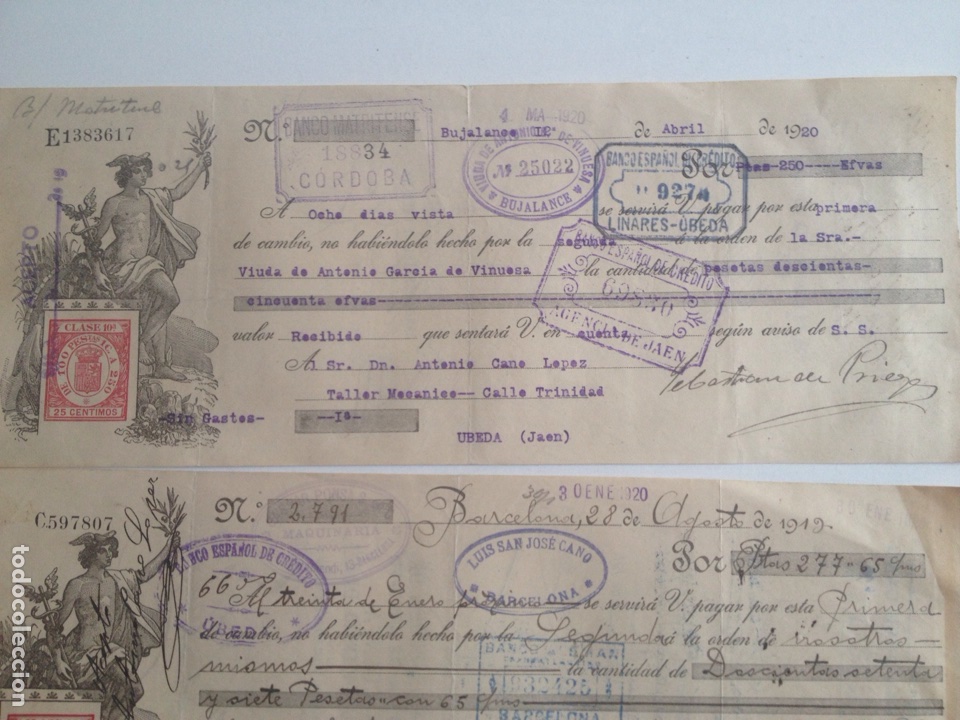 B/ Matritense
E1383617
N.º
BANCO MATRITENSE
18834
CÓRDOBA
4 MA 1920
Bujalance de Abril de 1920
VIUDA DE ANTONIO G.ª DE VINUESA
Nº 25022
BUJALANCE
BANCO ESPAÑOL DE CRÉDITO
9274
LINARES-ÚBEDA
Por Ptas-250----Efvas
A Ocho dias vista se servirá V. pagar por esta primera
de cambio, no habiéndolo hecho por la segunda á la orden de la Sra.-
Viuda de Antonio Garcia de Vinuesa la cantidad de pesetas descientas-
cincuenta efvas
BANCO ESPAÑOL DE CRÉDITO
AGENCIA DE JAEN
valor Recibido que sentará V. en cuenta según aviso de S. S.
A Sr. Dn. Antonio Cano Lopez
Taller Mecanico-- Calle Trinidad
-Sin Gastos-
--Iº--
UBEDA (Jaen)
CLASE 10ª
25 CENTIMOS
C597807
N.º 2.791
3 0 ENE 1920
Barcelona, 28 de Agosto de 1919.
BANCO ESPAÑOL DE CRÉDITO
UBEDA
LUIS SAN JOSÉ CANO
BARCELONA
Por Ptas 277"65 cms
Al treinta de Enero se servirá V. pagar por esta Primera
de cambio, no habiéndolo hecho por la Segunda á la orden de nosotros
mismos la cantidad de Doscientas setenta
y siete Pesetas con 65 cms
1932425
BARCELONA